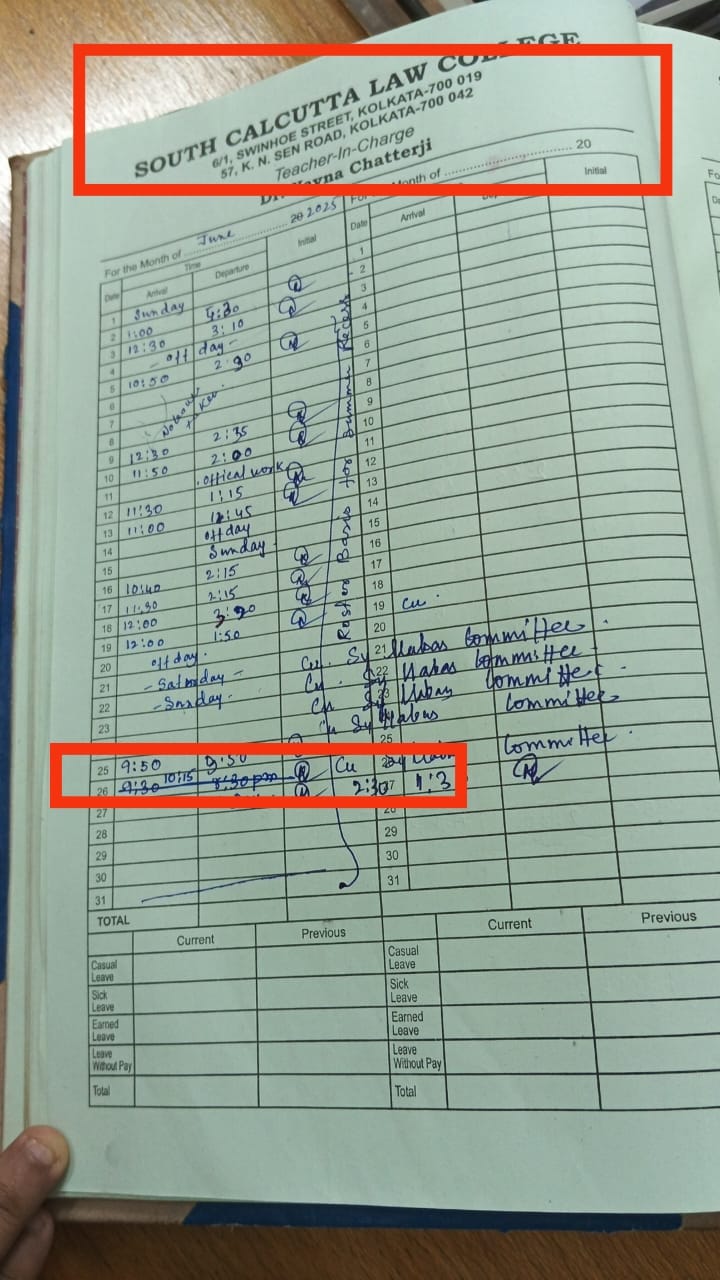 SOUTH CALCUTTA LAW COLLEGE
6/1, SWINHOE STREET, KOLKATA-700 019
57, K. N. SEN ROAD, KOLKATA-700 042
Teacher-In-Charge
Chatterji
For the Month of June 20 2025
Month of 20
Date Time Initial
Arrival Departure
Date Arrival Initial
1 Sunday
2 1:00 4:30
3 12:30 3:10
4 - off day -
5 10:50 2:30
6
7
8
9 12:30 2:35
10 11:50 2:00
11 offical work
12 11:30 1:15
13 11:00 12:45
14 off day
15 Sunday
16 10:40 2:15
17 11:30 2:15
18 12:00
19 12:00 1:50
20 off day.
21 - Saturday -
22 - Sunday -
23
25 9:50 3:30
26 9:30 10:15 8:30 pm
27
28
29
30
31
TOTAL
Roster Basis for Summer Recess
1
2
3
4
5
6
7
8
9
10
11
12
13
14
15
16
17
18
19 Cu.
20
21 Cu. Syllabus Committee
22 Cu. Syllabus Committee
23 Cu Syllabus Committee
Cu Syllabus Committee
25
Cu Committee
27 2:30
28
29
30
31
Current Previous
Casual Leave
Sick Leave
Earned Leave
Leave Without Pay
Total
Current Previous
Casual Leave
Sick Leave
Earned Leave
Leave Without Pay
Total